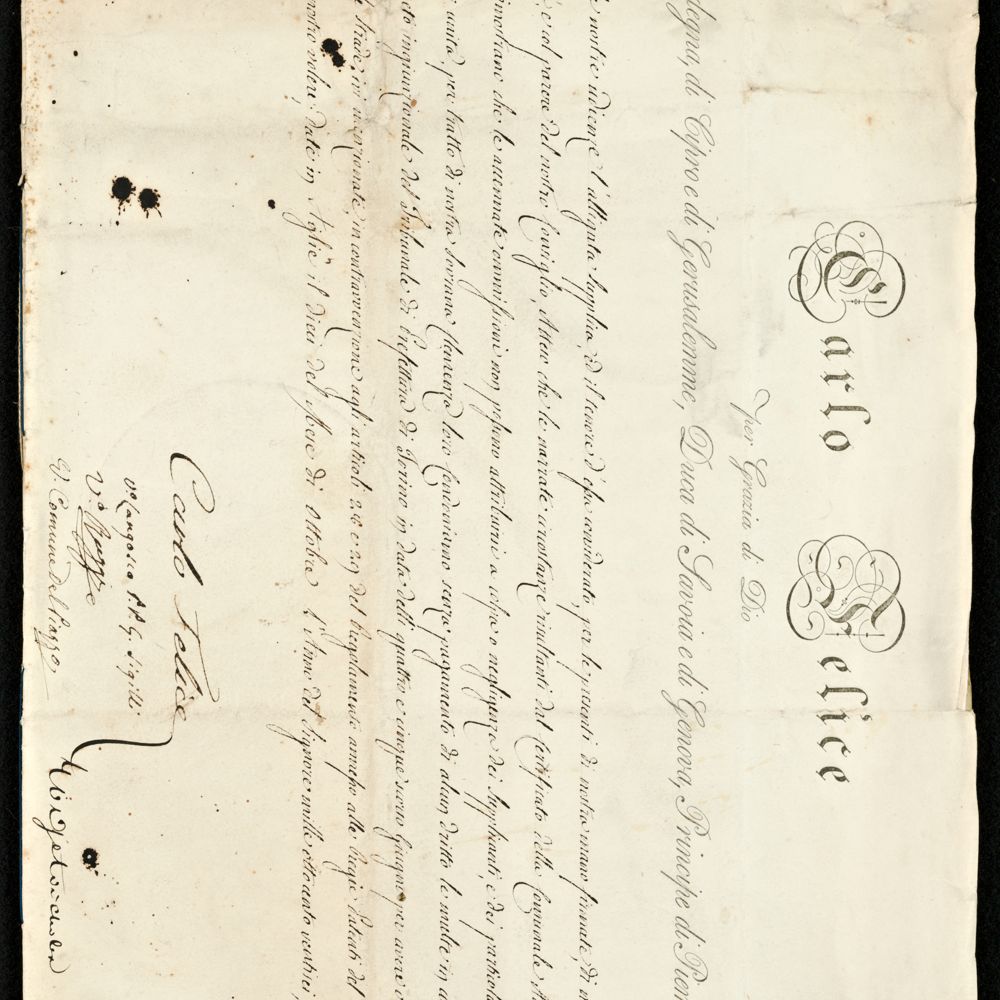 Carlo Felice
per Grazia di Dio
degna, di Cipro e di Gerusalemme, Duca di Savoia e di Genova, Principe di Piem
nostre udienze l'alligata supplica, ed il tenore d'essa considerato, per le presenti di nostra mano firmate, di n
ed al parere del nostro Consiglio, Atteso che le narrate circostanze risultanti dal certificato della Comunale
imostrano che le accennate ommissioni non possano attribuirsi a schivo o negligenza dei supplicanti, e dei particola
unita, per tratto di nostra sovrana clemenza loro condoniamo senza pagamento di alcun dritto le multe in
ingiunzionale del Tribunale di Prefettura di Torino in data delli quattro e cinque scorso Giugno per avere
strade, ivi menzionate, in contravvenzione agli articoli 28 e 29 del Regolamento annesso alle Regie Patenti del
nostro volere, date in Aglié il dieci del Mese di Ottobre l'Anno del Signore mille otto cento ventisei,
Carlo Felice
V.o Langosco P.P. G. Sigilli
V.o
V. Comune